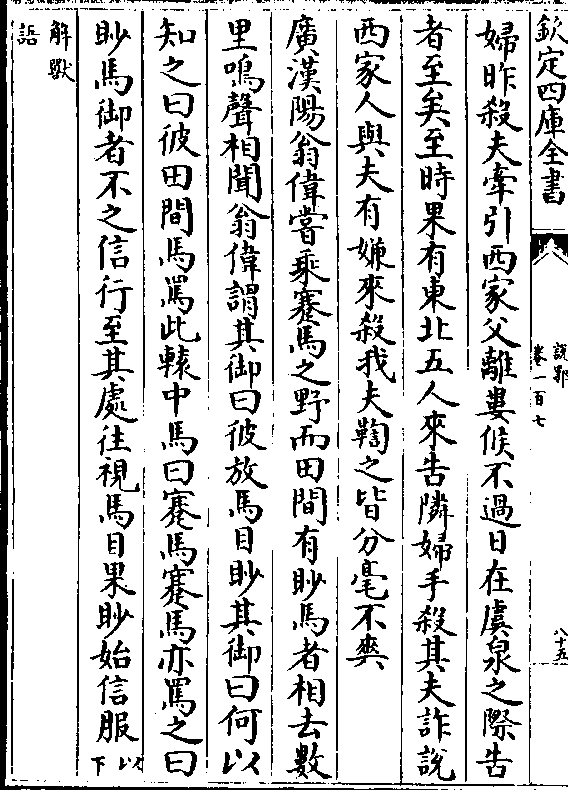 欽定四庫全書
說郛
卷一百七
八十五
婦昨殺夫牽引西家父離婁候不過日在虞泉之際告
者至矣至時果有東北五人來告隣婦手殺其夫詐說
西家人與夫有嫌來殺我夫鞫之皆分毫不爽
廣漢陽翁偉嘗乘蹇馬之野而田間有眇馬者相去數
里鳴聲相聞翁偉謂其御曰彼放馬目眇其御曰何以
知之曰彼田間馬罵此轅中馬曰蹇馬蹇馬亦罵之曰
眇馬御者不之信行至其處往視馬目果眇始信服以下
解獸語